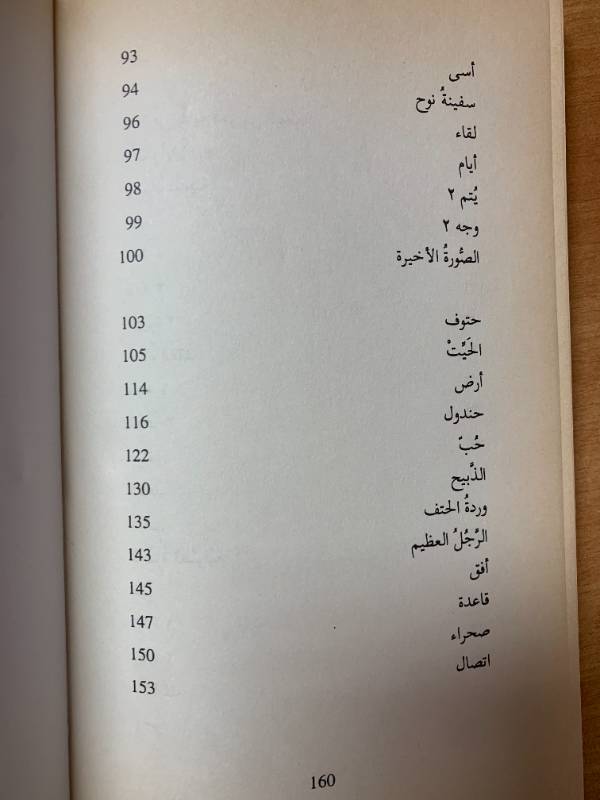 أسى 93
سفينةُ نوح 94
لقاء 96
أيام 97
يُتم ٢ 98
وجه ٢ 99
الصُّورةُ الأخيرة 100
حتوف 103
الحَيِّتْ 105
أرض 114
حندول 116
حُبّ 122
الذَّبيح 130
وردةُ الحتف 135
الرَّجُلُ العظيم 143
أفق 145
قاعدة 147
صحراء 150
اتصال 153
160